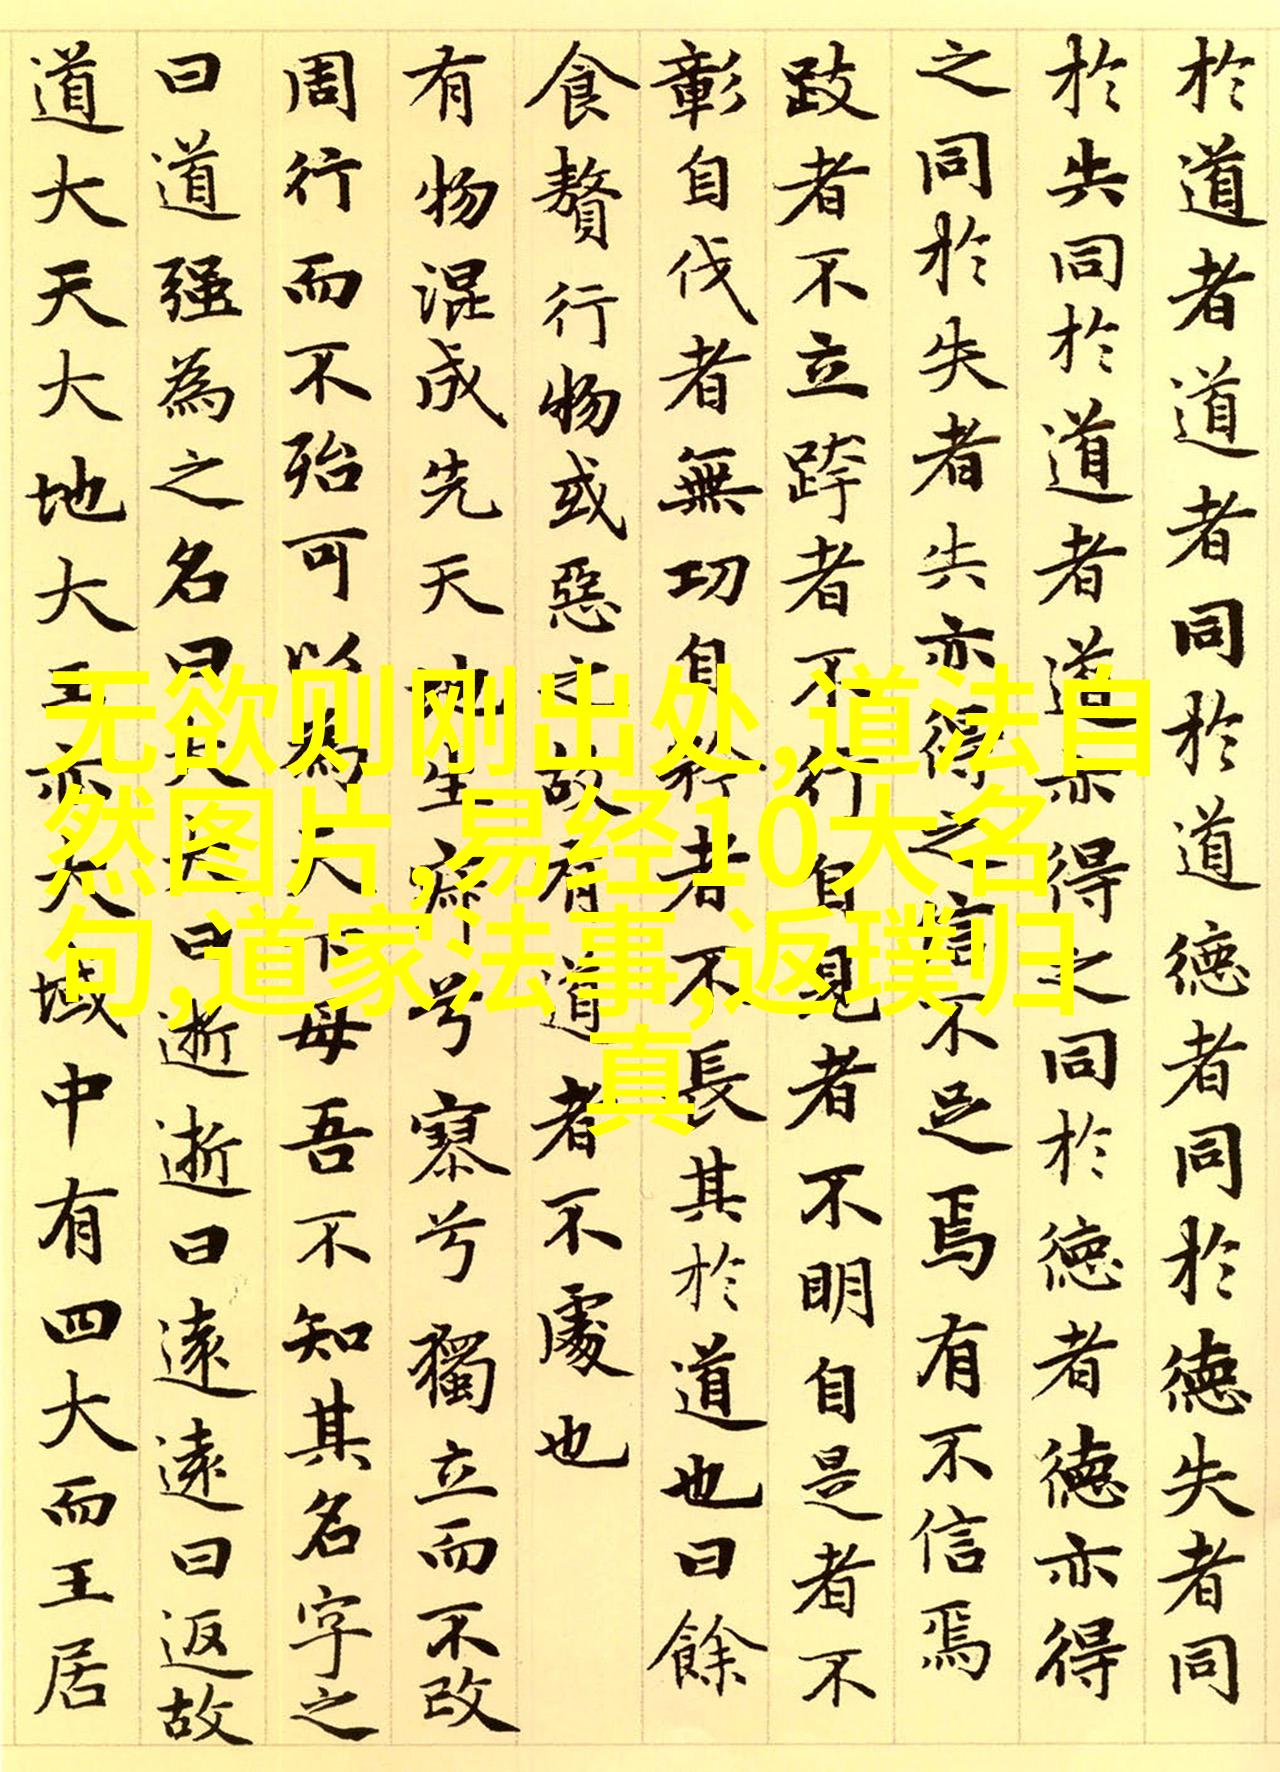 於道者道者同於道德者同於德失者同
於失同於道者道亦得之同於德者德亦得
之同於失者失亦得之信不足焉有不信焉
跂者不立跨者不行自見者不明自是者不
彰自伐者無功自矜者不長其於道也曰餘
食贅行物或惡之故有道者不處也
有物混成先天地生寂兮寥兮獨立而不改
周行而不殆可以為天下母吾不知其名字之
曰道强為之名曰大大曰逝逝曰遠遠曰返故
道大天大地大王亦大域中有四大而王居
无欲则刚出处,道法自
然图片,易经10大名
句,道家法事,返璞归
真